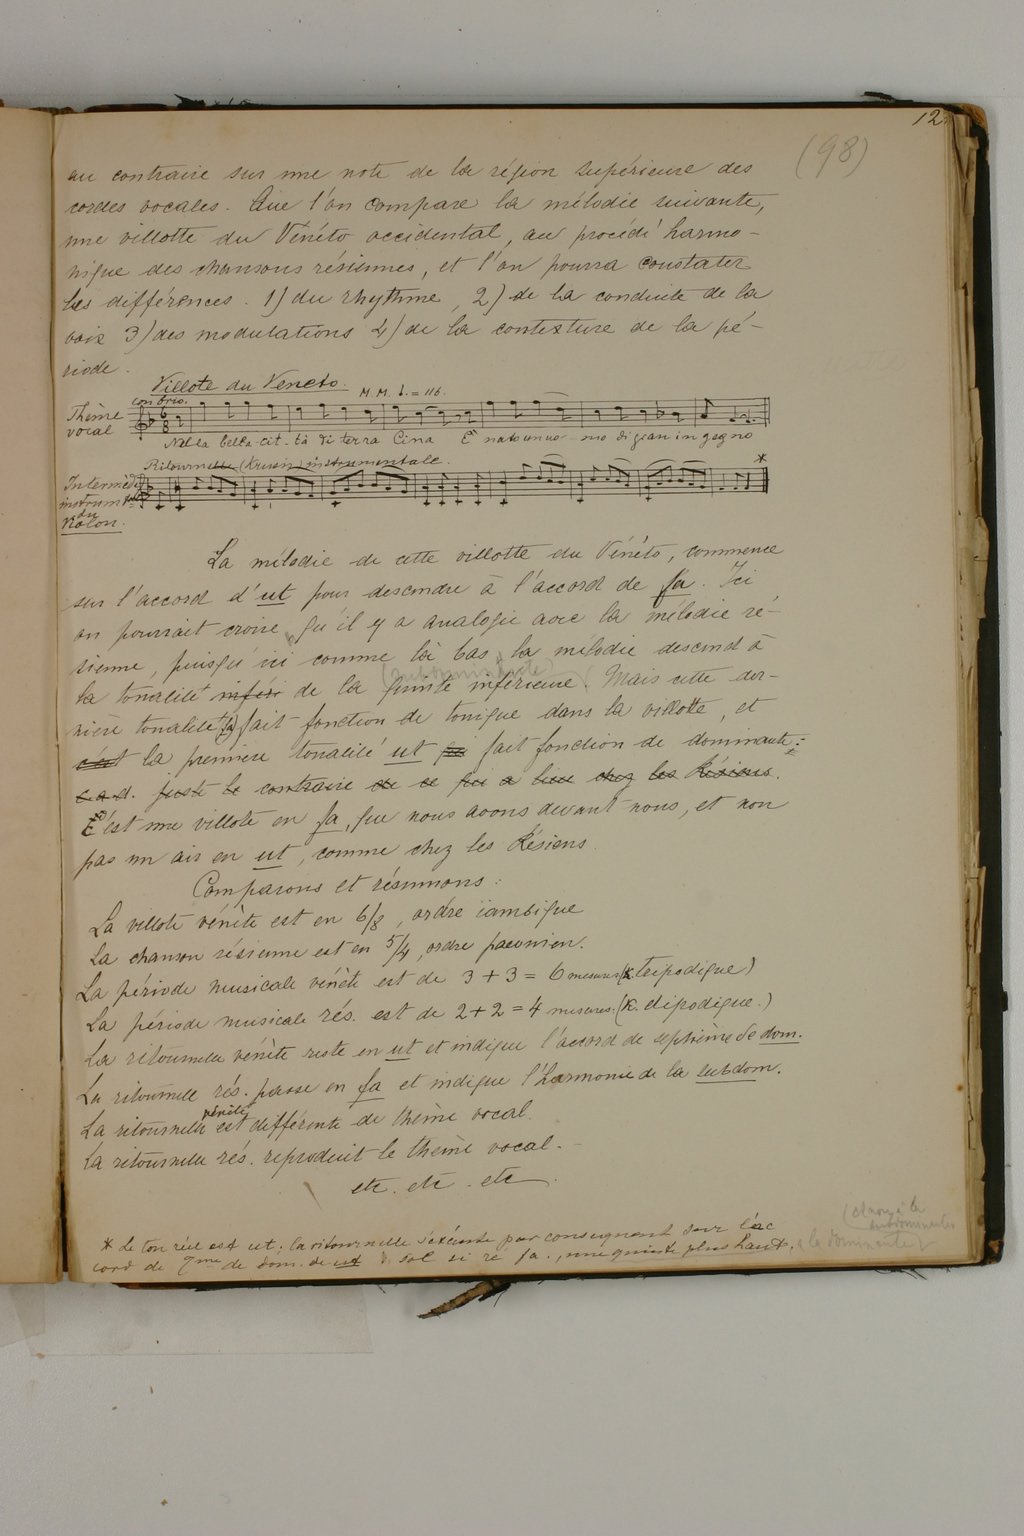 12
(98)
au contraire sur une note de la région supérieure des
cordes vocales. Que l'on compare la mélodie suivante,
une villotte du Vénéto occidental, au procédé harmo-
nique des chansons résiennes, et l'on pourra constater
les différences. 1) du rhythme, 2) de la conduite de la
voix 3) des modulations 4) de la contexture de la pé-
riode.
Villote du Veneto.
con brio. M.M. = 116.
Thème
vocal
Nella bella cit-tà di terra Cina È nato un uo-mo di gran ingegno
Ritournelle instrumentale.
Intermède
instrum
du
Violon.
La mélodie de cette villotte du Vénéto, commence
sur l'accord d'ut pour descendre à l'accord de fa. Ici
on pourrait croire qu'il y a analogie avec la mélodie ré-
sienne, puisqu'ici comme là bas la mélodie descend à
(subdominante)
la tonalité inféri de la quinte inférieure. Mais cette der-
nière tonalité (fa) fait fonction de tonique dans la villotte, et
c'est la première tonalité ut qui fait fonction de dominante:
c.a.d. juste le contraire de ce qui a lieu chez les Résiens.
C'est une villote en fa, que nous avons devant nous, et non
pas un air en ut, comme chez les Résiens.
Comparons et résumons:
La villote vénète est en 6/8, ordre iambique
La chanson résienne est en 5/4, ordre paeonien.
La période musicale vénète est de 3+3 = 6 mesures (K. tripodique)
La période musicale rés. est de 2+2 = 4 mesures. (K. dipodique.)
La ritournelle vénète reste en ut et indique l'accord de septième de dom.
La ritournelle rés. passe en fa et indique l'harmonie de la subdom.
La ritournelle vénète est différente de thème vocal.
La ritournelle rés. reproduit le thème vocal.-
etc. etc. etc
(et non à la
subdominante
à la dominante)
* Le ton réel est ut; la ritournelle s'exécute par conséquent sur l'ac
cord de 7me de dom. de ut: sol si ré fa, une quinte plus haut.